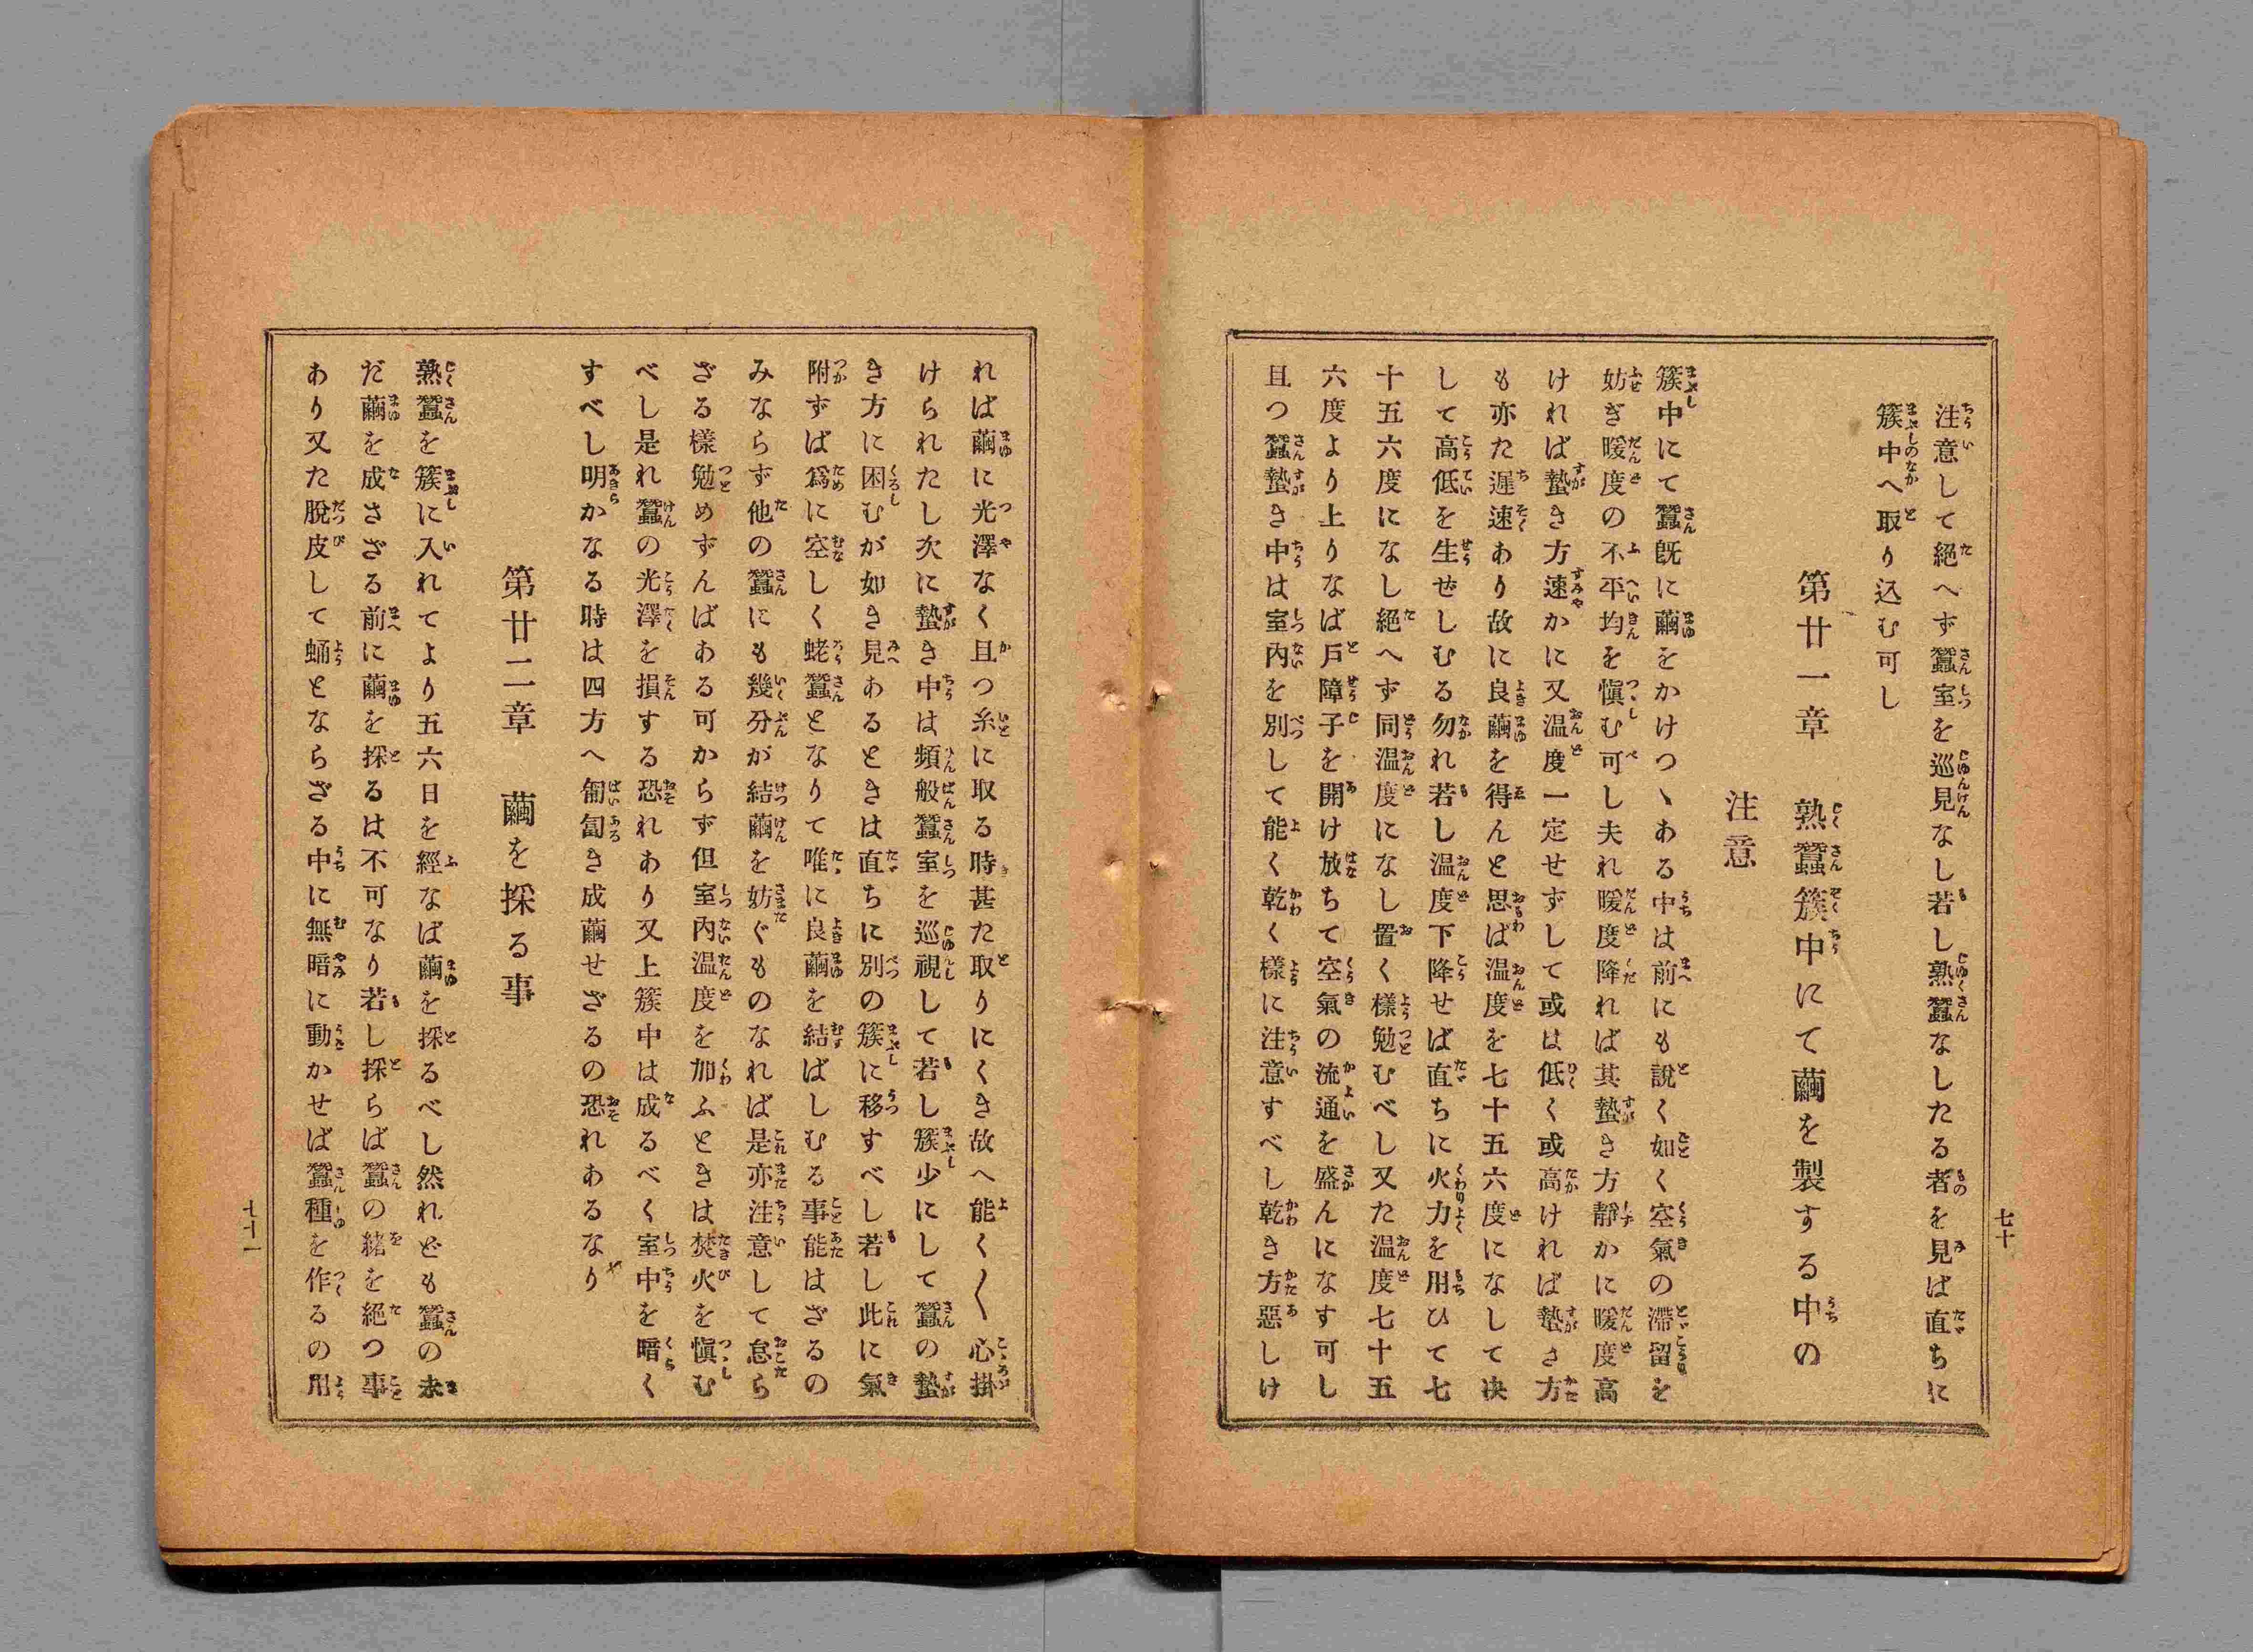 注意して絕へず蠶室を巡見なし若し熟蠶なしたる者を見ば直ちに
簇中へ取り込む可し
第廿一章　熟蠶簇中にて繭を製する中の
注意
簇中にて蠶旣に繭をかけつヽある中は前にも說く如く空氣の滯留を
妨ぎ暖度の不平均を愼む可し夫れ暖度降れば其蟄き方靜かに暖度高
ければ蟄き方速かに又温度一定せずして或は低く或高ければ蟄き方
も亦た遲速あり故に良繭を得んと思ば温度を七十五六度になして决
して高低を生ぜしむる勿れ若し温度下降せば直ちに火力を用ひて七
十五六度になし絕へず同温度になし置く樣勉むべし又た温度七十五
六度より上りなば戶障子を開け放ちて空氣の流通を盛んになす可し
且つ蠶蟄き中は室內を別して能く乾く樣に注意すべし乾き方惡しけ
七十
れば繭に光澤なく且つ糸に取る時甚た取りにくき故へ能く〱心掛
けられたし次に蟄き中は頻般蠶室を巡視して若し簇少にして蠶の蟄
き方に困むが如き見あるときは直ちに別の簇に移すべし若し此に氣
附ずば爲に空しく蛯蠶となりて唯に良繭を結ばしむる事能はざるの
みならず他の蠶にも幾分が結繭を妨ぐものなれば是亦注意して怠ら
ざる樣勉めずんばある可からず但室內温度を加ふときは焚火を愼む
べし是れ蠶の光澤を損する恐れあり又上簇中は成るべく室中を暗く
すべし明かなる時は四方へ匍匐き成繭せざるの恐れあるなり
第廿二章　繭を採る事
熟蠶を簇に入れてより五六日を經なば繭を採るべし然れども蠶の未
だ繭を成さざる前に繭を採るは不可なり若し採らば蠶の緖を絕つ事
あり又た脫皮して蛹とならざる中に無暗に動かせば蠶種を作るの用
七十一